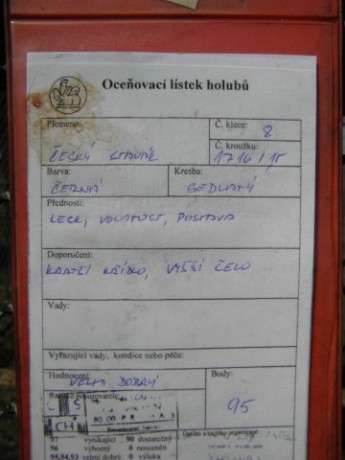 Oceňovací lístek holubů
Plemeno: ČESKÝ STAVÁK
Č. klece: 8
Č. kroužku: 1716/15
Barva: ČERNÁ
Kresba: SEDLATÝ
Přednosti:
LESK, VOLATOST, POSTAVA
Doporučení:
KRATŠÍ KŘÍDLO, VYŠŠÍ ČELO
Vady:
Vyřazující vady, kondice nebo péče:
Hodnocení: VELMI DOBRÝ
Body: 95
97 vynikající 90 dostatečný
96 výborný 0 neoceněn
95,94,93 velmi dobrý 0 výluka